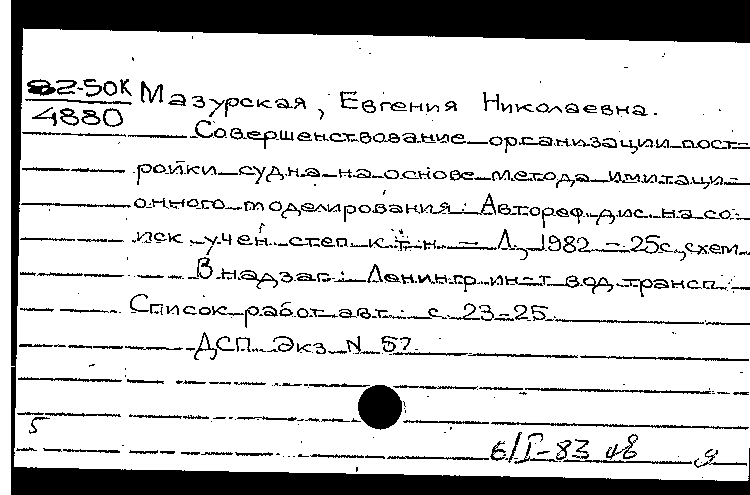 82-50К
4880
Мазурская, Евгения Николаевна.
Совершенствование организации пост-
ройки судна на основе метода имитаци-
онного моделирования: Автореф. дис. на со-
иск. учен. степ. к.т.н. - Л., 1982 - 25с., схем.
В надзаг: Ленингр. ин-т вод. трансп.
Список работ авт: с. 23-25.
ДСП. Экз. N 57.
5
6/I-83